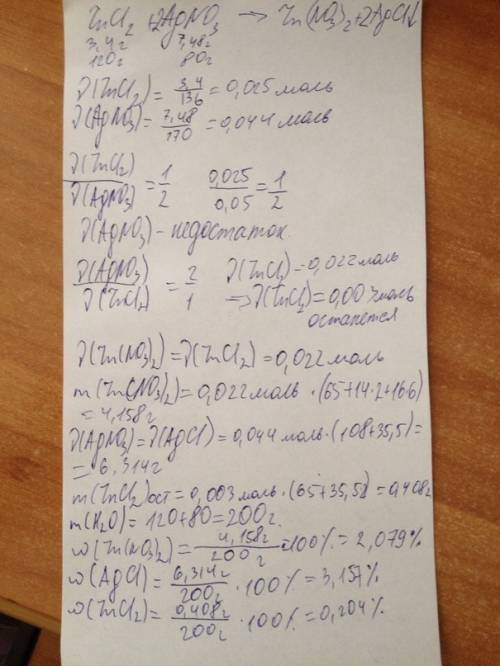 ZnCl2 + 2AgNO3 → Zn(NO3)2 + 2AgCl↓
3,4г 7,48г
120г 80г
ν(ZnCl2) = 3,4/136 = 0,025 моль
ν(AgNO3) = 7,48/170 = 0,044 моль
ν(ZnCl2)/ν(AgNO3) = 1/2 0,025/0,05 = 1/2
ν(AgNO3) - недостаток
ν(AgNO3)/ν(ZnCl2) = 2/1 ν(ZnCl2) = 0,022 моль
⇒ ν(ZnCl2) = 0,003 моль
останется
ν(Zn(NO3)2) = ν(ZnCl2) = 0,022 моль
m(Zn(NO3)2) = 0,022 моль · (65+14·2+16·6)
= 4,158г
ν(AgNO3) = ν(AgCl) = 0,044 моль · (108+35,5) =
= 6,314г
m(ZnCl2)ост = 0,003 моль · (65+35,5·2) = 0,408г
m(H2O) = 120+80 = 200г.
ω(Zn(NO3)2) = 4,158г/200г · 100% = 2,079%
ω(AgCl) = 6,314г/200г · 100% = 3,157%
ω(ZnCl2) = 0,408г/200г · 100% = 0,204%